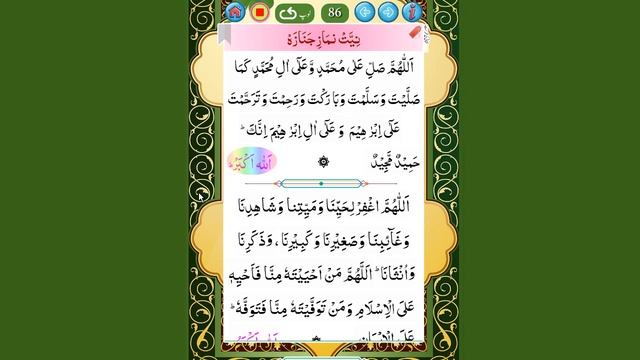 لوپ 86
نِیَّتْ نمازِ جَنَازَہ
اَللّٰهُمَّ صَلِّ عَلٰی مُحَمَّدٍ وَّعَلٰٓی اٰلِ مُحَمَّدٍ کَمَا
صَلَّیْتَ وَسَلَّمْتَ وَبَارَکْتَ وَرَحِمْتَ وَتَرَحَّمْتَ
عَلٰٓی اِبْرٰهِیْمَ وَعَلٰٓی اٰلِ اِبْرٰهِیْمَ اِنَّكَ
حَمِیْدٌ مَّجِیْدٌ اَللّٰهُ اَکْبَرُ
اَللّٰهُمَّ اغْفِرْلِحَیِّنَا وَمَیِّتِنَا وَشَاهِدِنَا
وَغَآئِبِنَا وَصَغِیْرِنَا وَکَبِیْرِنَا، وَذَکَرِنَا
وَاُنْثَانَا اَللّٰهُمَّ مَنْ اَحْیَیْتَهٗ مِنَّا فَاَحْیِهٖ
عَلَی الْاِسْلَامِ وَمَنْ تَوَفَّیْتَهٗ مِنَّا فَتَوَفَّهٗ
عَلَی الْاِیْمَانِ اَللّٰهُ اَکْبَرُ